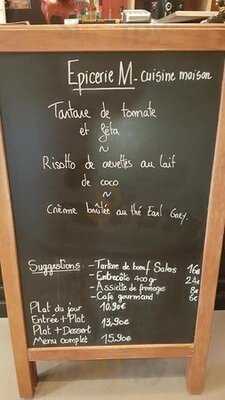 Epicerie M - cuisine maison
Tartare de tomate
et feta
~
Risotto de crevettes au lait
de coco
~
Crème brûlée au thé Earl Grey.
Suggestions - Tartare de bœuf Salers 16€
- Entrecôte 400gr 24€
- Assiette de fromages 8€
- Café gourmand 6€
Plat du jour 10,90€
Entrée + Plat
Plat + Dessert 13,90€
Menu complet 15,90€